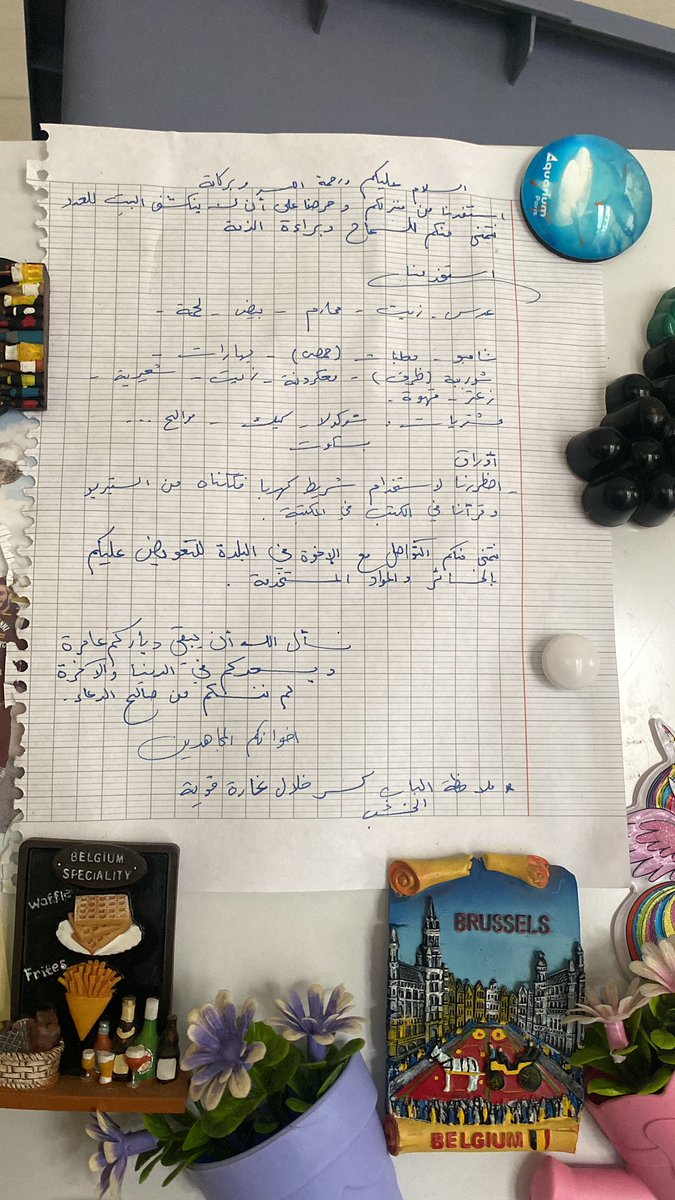 السلام عليكم ورحمة الله وبركاته
استفدنا من منزلكم وحرصنا على أن لا ينكشف البيت للعدو
نتمنى منكم السماح وبراءة الذمة
استخدمنا
عدس - زيت - محارم - بيض - لحمة -
شامبو - معلبات (حمص) - بهارات -
شوربة (ظرف) - معكرونة - زيت - شعيرية -
زعتر - قهوة -
شوكولا - كيك - موالح ...
بسكوت
أوراق
- اضطررنا لاستخدام شريط كهربا فككناه من الستيريو
وقرأنا في الكتب في المكتبة .
نتمنى منكم التواصل مع الإخوة في البلدة للتعويض عليكم
بالخسائر والمواد المستخدمة .
نسأل الله أن يبقي دياركم عامرة
ويسعدكم في الدنيا والآخرة
لم ننساكم من صالح الدعاء .
اخوانكم المجاهدين
* ملاحظة الباب كسر خلال غارة قوية
الخشب
Aquarium
Paris
BELGIUM
SPECIALITY
Waffles
Frites
BRUSSELS
BELGIUM